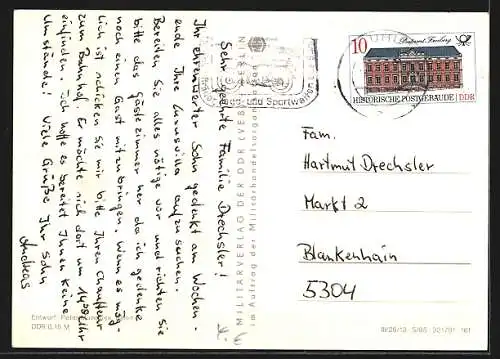 Sehr geehrte Familie Drechsler!
Ihr ehrenwerter Sohn gedenkt am Wochen-
ende Ihre Luxusvilla aufzusuchen.
Bereiten Sie alles nötige vor und richten Sie
bitte das Gästezimmer her da ich gedenke
noch einen Gast mitzubringen. Wenn es mög-
lich ist schicken Sie mir bitte Ihren Chauffeur
zum Bahnhof. Er möchte sich dort um 14⁰⁰
einfinden. Ich hoffe es bereitet Ihnen keine
Umstände. Viele Grüße Ihr Sohn
Andreas
MILITÄRVERLAG DER DDR (VEB) BERLIN
im Auftrag der Militärhandelsorganisation
Jagd- und Sportwaffen
10
Postamt Freiberg
HISTORISCHE POSTGEBÄUDE DDR
Fam.
Hartmut Drechsler
Markt 2
Blankenhain
5304
Entwurf:
DDR 0,15 M